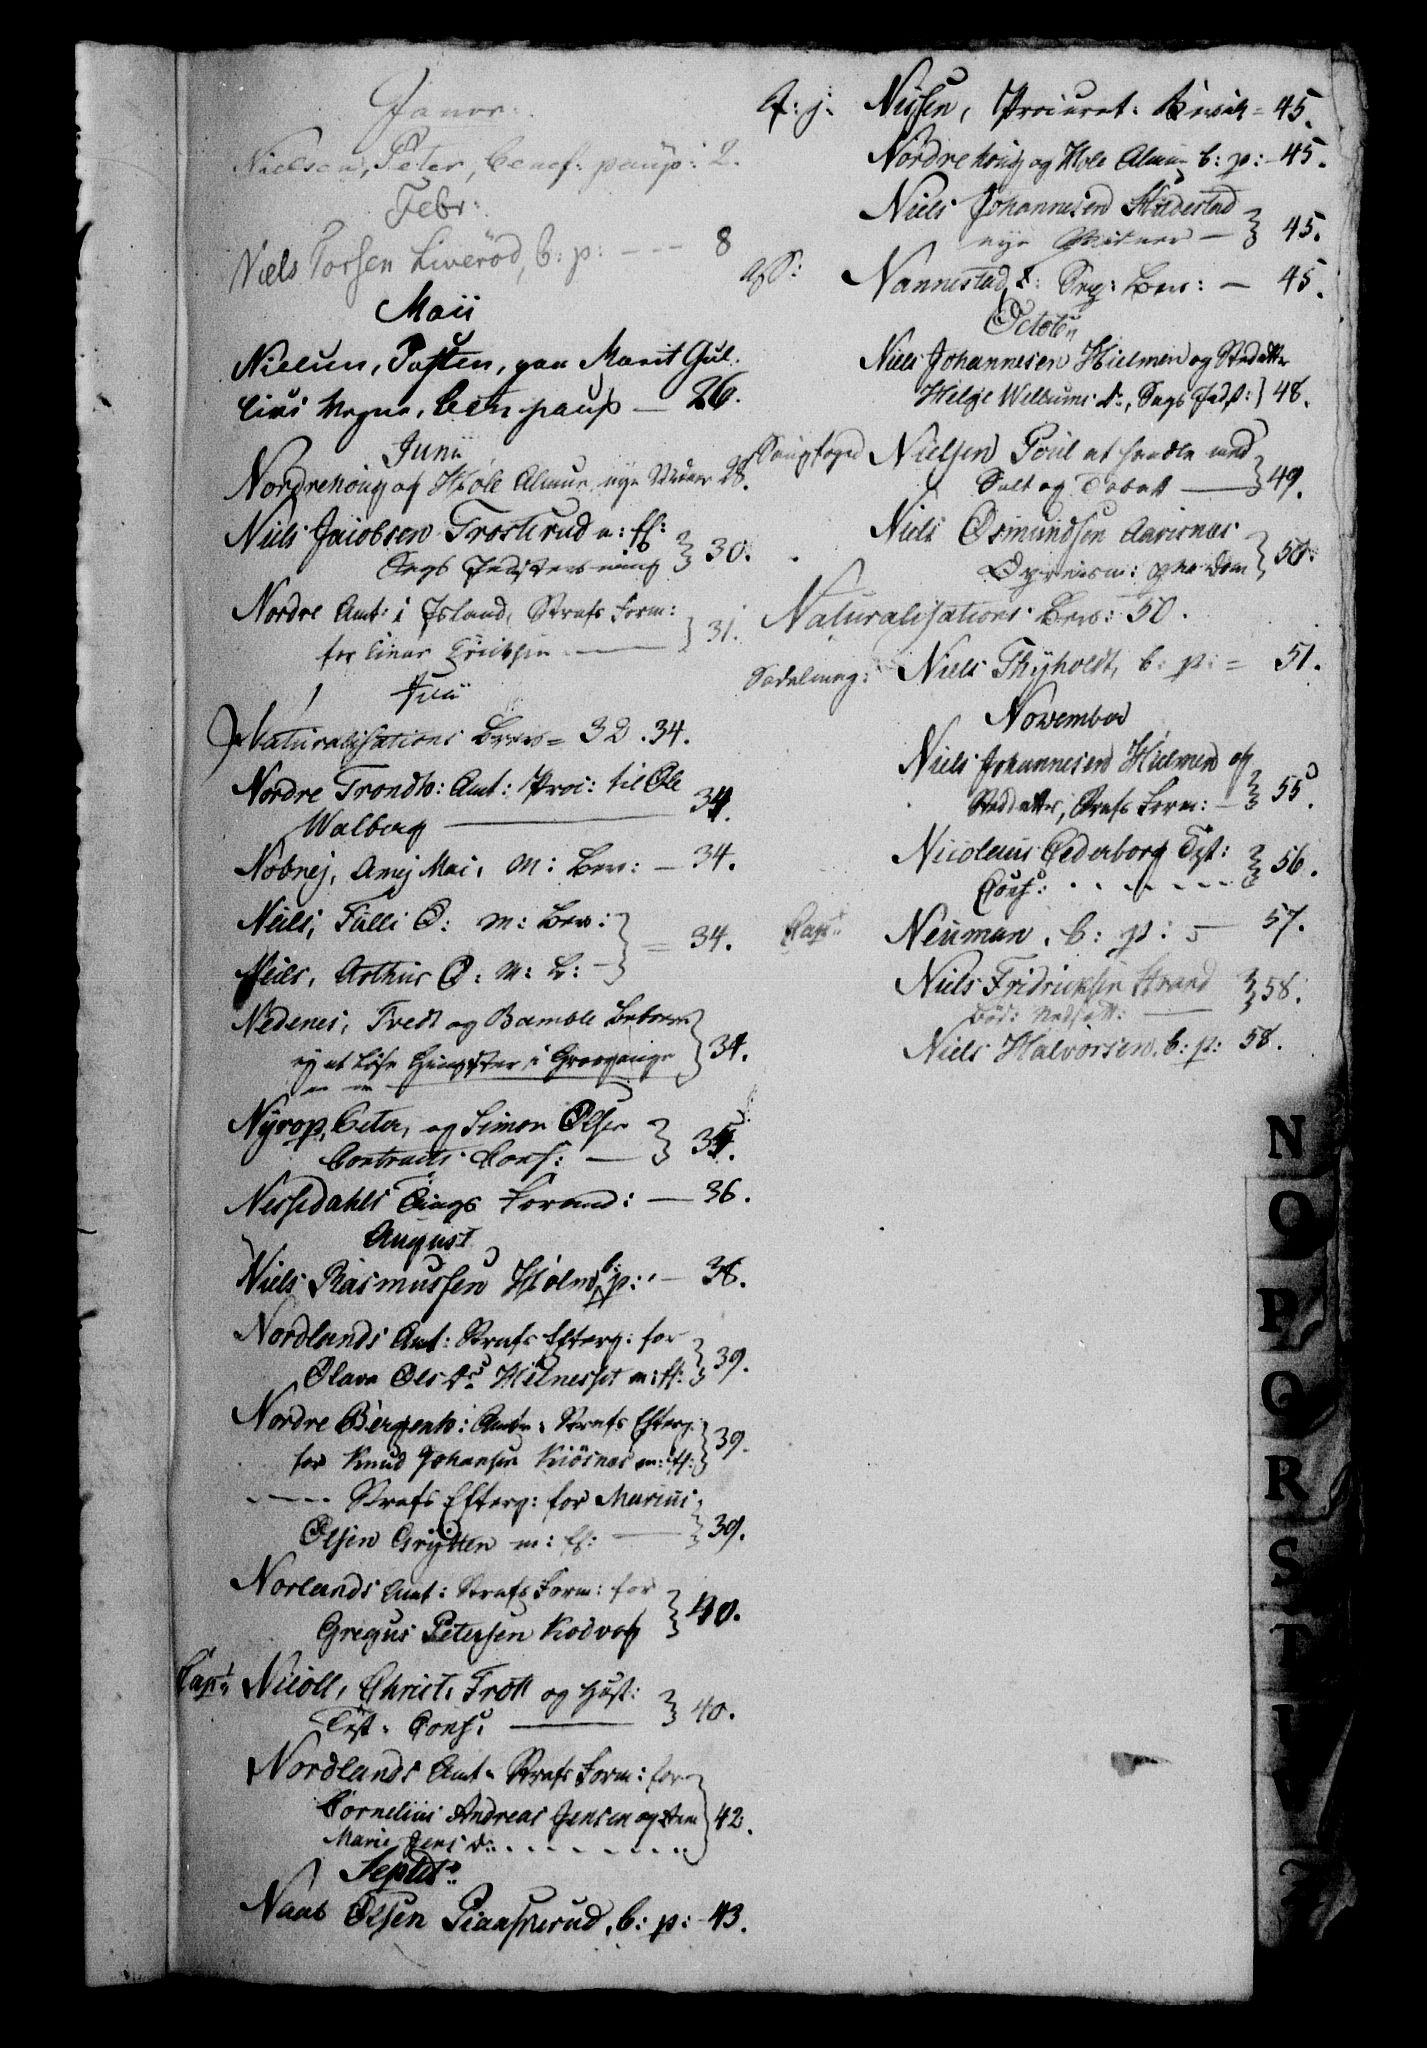 Janr.
Nielsen, Peter, benef: paup: 2.
Febr:
Niels Torsen Liveröd, b: p: --- 8
Maii
Nielsen, Pasten, paa Marit Gul.
Vegne, ben: paup — 26.
Junii
Nordrehoug og Hole Almue, nye 28.
Niels Jacobsen Trostrud m: fl:
Sags 30.
Nordre Amt i Island, Strafs Form:
for Einar Erichsen — 31.
Juli
Naturalisations Brev = 32. 34.
Nordre Trondh: Amt: Proc: til Ole
Walberg — 34.
Nobnej, Amej Mar: M: Bev: — 34.
Neils, Tulli O: M: Bev:
Neils, Arthur O: M: B: — = 34.
Nedenes, Tvedt og Bamble
at løse Hingster i Græsgange 34.
Nyrop, Peter, og Simon Olsen
Contracts Conf: — 35.
Nessedahls Tings Forand: — 36.
August
Niels Rasmussen Holm, b: p: — 38.
Nordlands Amt: Strafs Efterg: for
Olava Ols Dr. Hilnesset m: fl: 39.
Nordre Bergenh: Amt: Strafs Efterg:
for Knud Johansen Kiösnas m: fl: 39.
---- Strafs Efterg: for Marius
Olsen Grytten m: fl: — 39.
Norlands Amt: Strafs Form: for
Gregus Petersen Kodvag 40.
Capt: Nicoll, Christ: Trott og Hust:
Test: Conf: — 40.
Nordlands Amt: Strafs Form: for
Cornelius Andreas Jensen og Ane
Marie Jens D: . . . . 42.
Septbr:
Naab Olsen Piaasserud, b: p: - 43.
A: j. Nissen, Procurat: = 45.
Nordrehoug og Hole Almue b: p: - 45.
Niels Johannesen Hildestad
nye — 45.
Aff: Nannestad, : Bev: — 45.
October
Niels Johannesen Hielmen og Sted
Helge Willums Dr., Sags 48.
Nielsen Poul at handle med
Salt og Tobak — 49.
Niels Osmundsen Aarisnæs
Opreisn: pro Dom 50.
Naturalisations Brev: 50.
Sadelmag: Niels Thyholdt, b: p: = 51.
November
Niels Johannesen Hielmen og
Strafs Form: — 55.
Nicolaus Cederborg Test:
Conf: . . . . 56.
Capt: Neuman, b: p: — 57.
Niels Fridrichsen Strand
Böd: Nedsætt: — 58.
Niels Halvorsen, b: p: 58.
N
O
P
Q
R
S
T
V